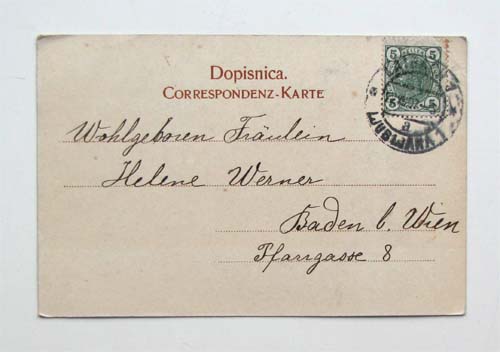 Dopisnica.
CORRESPONDENZ-KARTE
5 5
5 5
LJUBLJANA 1
Wohlgeboren Fräulein
Helene Werner
Baden b. Wien
Pfarrgasse 8